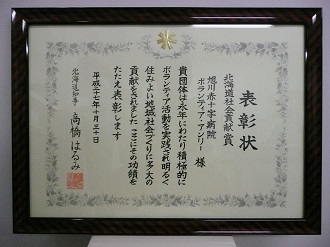 表彰状
北海道社会貢献賞
旭川赤十字病院
ボランティア・アンリー 様
貴団体は永年にわたり積極的に
ボランティア活動を実践され明るく
住みよい地域社会づくりに多大の
貢献をされました ここにその功績を
たたえ表彰します
平成二十七年十月三十日
北海道知事 高橋はるみ